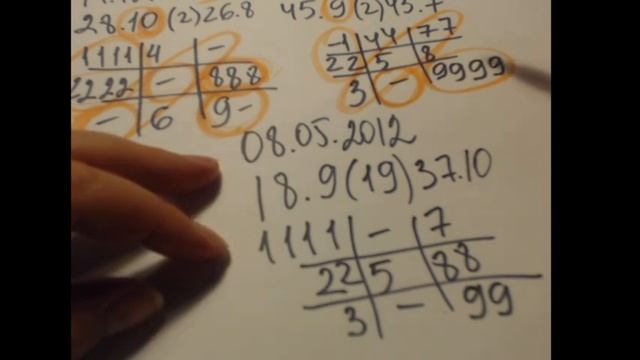 28.10(2)26.8
45.9(2)43.7
1111 4 -
2222 - 888
- 6 9-
-1 44 77
22 5 8
3 - 9999
08.05.2012
18.9(19)37.10
1111 - 7
22 5 88
3 - 99